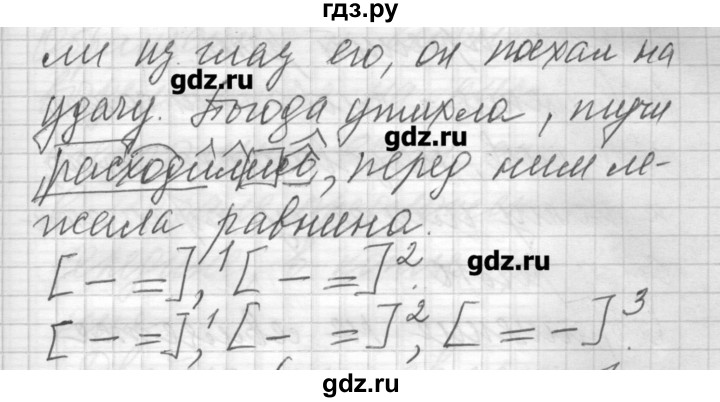 гдз.ру
ли из глаз его, он поехал на
gdz.ru
удачу. Погода утихла, тучи
gdz.ru
расходились, перед ним ле-
жала равнина.
[ – = ],¹ [ – = ]².
gdz.ru
[ – = ],¹ [ – = ]², [ = – ]³.
gdz.ru